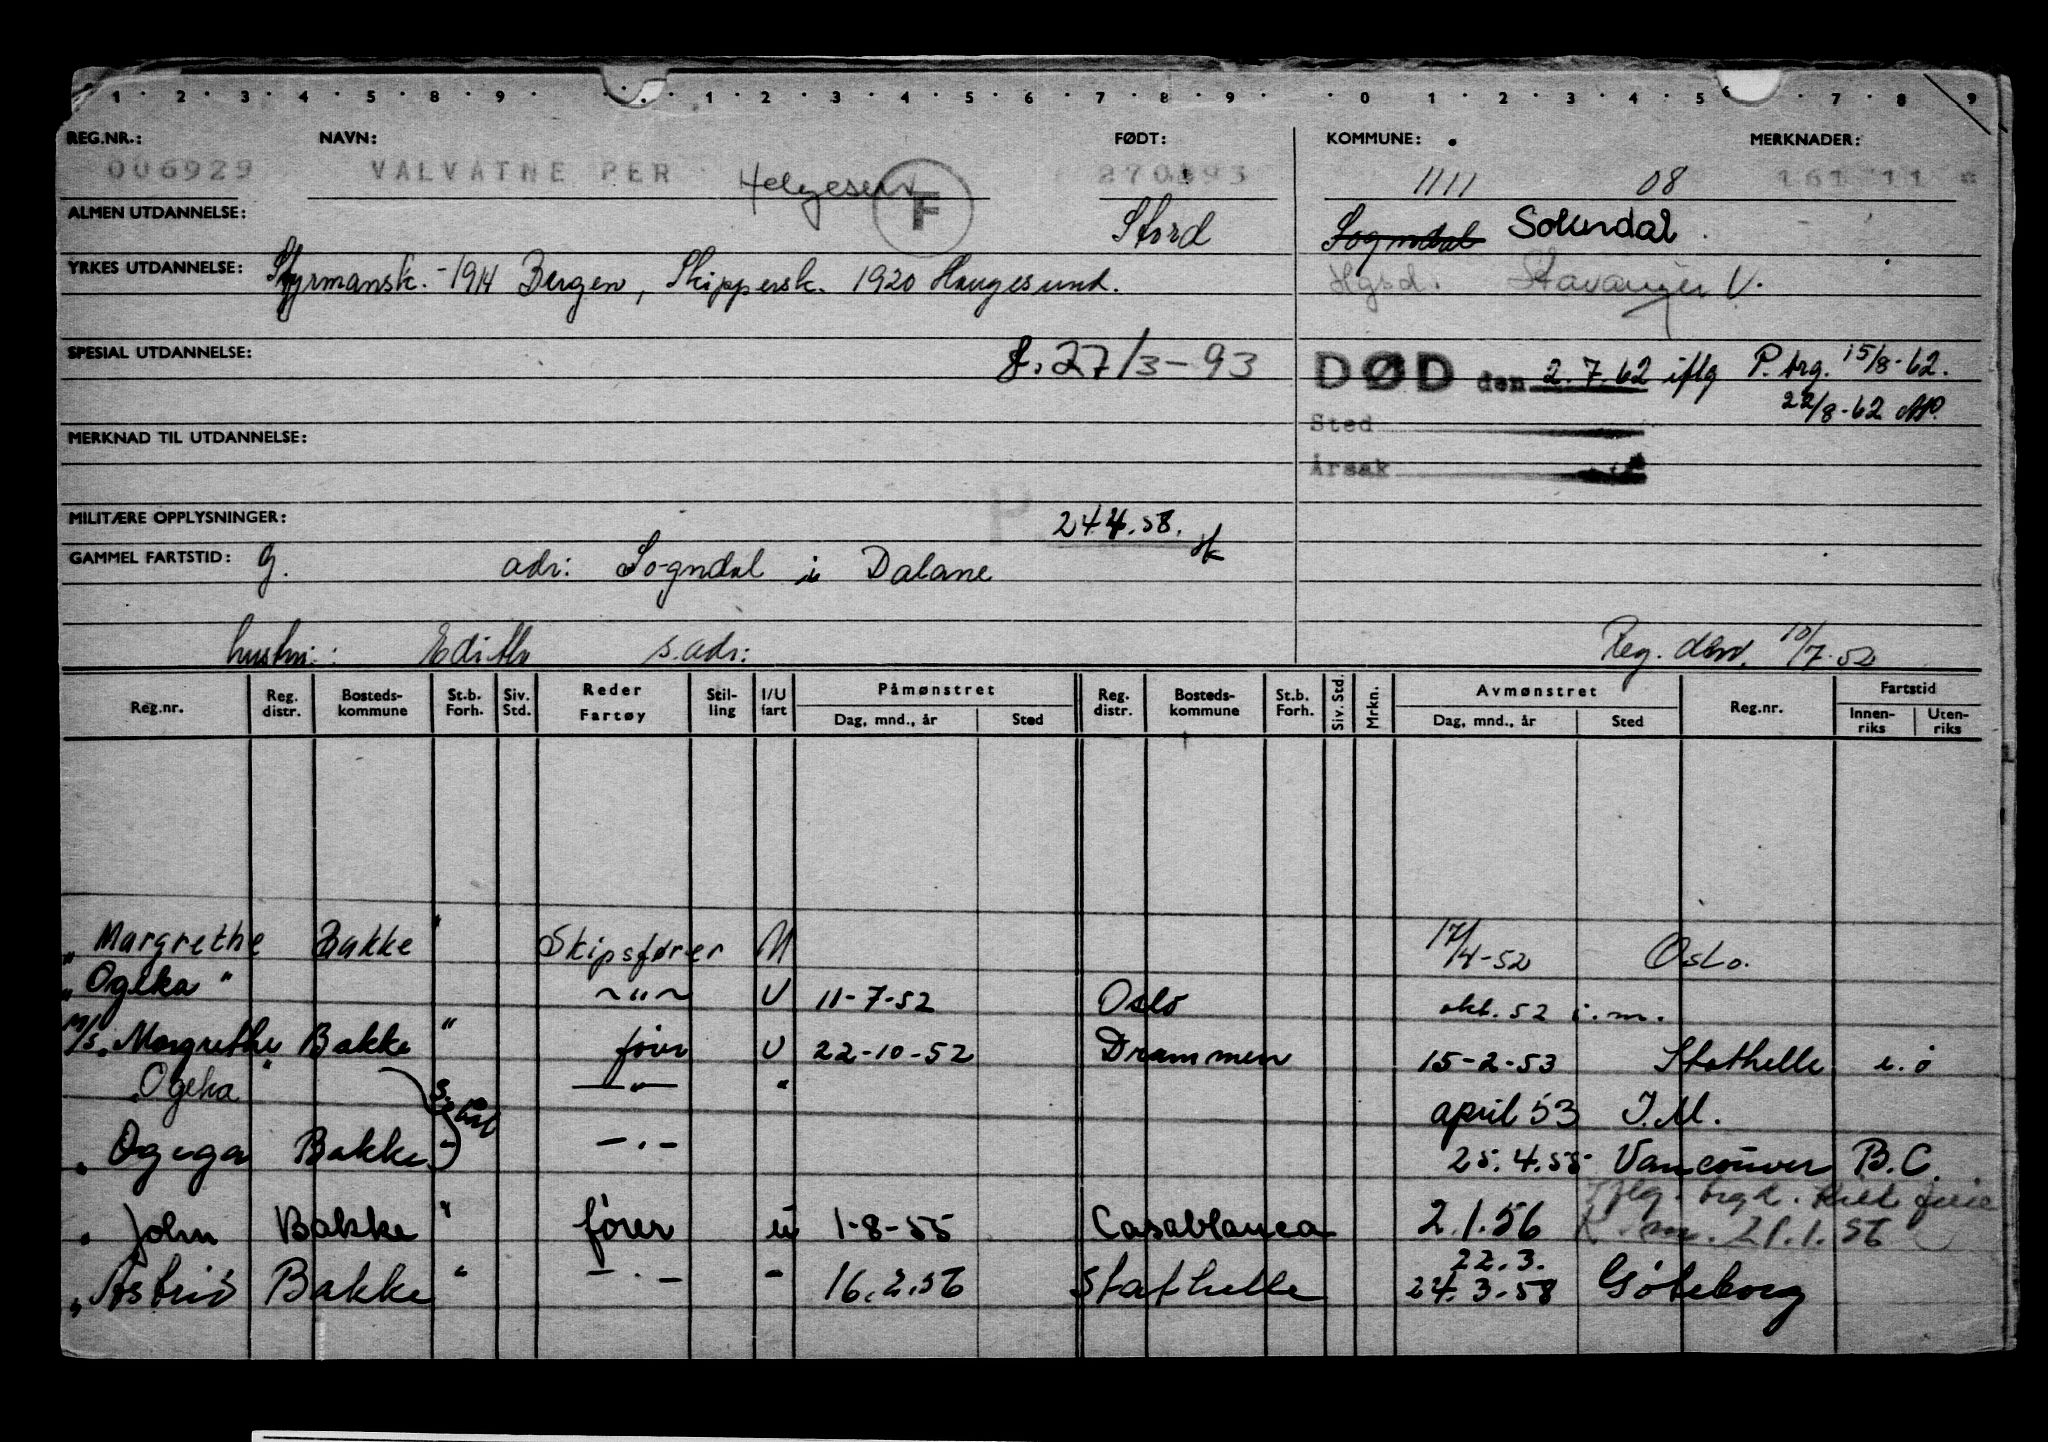 1 · 2 · 3 · 4 · 5 · 8 · 9 · 1 · 2 · 3 · 4 · 5 · 6 · 7 · 8 · 9 · 0 · 1 · 2 · 3 · 4 · 5 6 · 7 · 8 · 9
REG.NR.: NAVN: FØDT: KOMMUNE: MERKNADER:
006929 VALVATNE PER Helgesen F 270393 1111 08 161 11 *
ALMEN UTDANNELSE: Stord Sogndal Sokndal
YRKES UTDANNELSE: Styrmansk. -1914 Bergen, Skippersk. 1920 Haugesund. Hgsd. Stavanger V.
SPESIAL UTDANNELSE: f. 27/3-93 DØD den 2.7.62 iflg P. brg. 15/8-62.
22/8-62
Sted
MERKNAD TIL UTDANNELSE:
Årsak
MILITÆRE OPPLYSNINGER: P 24.4.58.
GAMMEL FARTSTID: g. adr: Sogndal i Dalane
hustru: Edith s. adr: Reg. 10/7-52
Reg.nr. Reg. distr. Bosteds-kommune St.b. Forh. Siv. Std. Reder Fartøy Stil-ling I/U fart Påmønstret Dag, mnd., år Sted Reg. distr. Bosteds-kommune St.b. Forh. Siv. Std. Mrkn. Avmønstret Dag, mnd., år Sted Reg.nr. Fartstid Innen-riks Uten-riks
" Margrethe Bakke " Skipsfører U 17/4-52 Oslo.
" Ogeka " ~"~ U 11-7-52 Oslo okt. 52 i.m.
M/S. Margrethe Bakke " fører U 22-10-52 Drammen 15-2-53 Stathelle i.ø
Ogeka " —"— " april 53 I.M.
" Ogega Bakke - -.- 25.4.55 Vancouver B.C.
" John Bakke " fører u 1-8-55 Casablanca 2.1.56 Iflg. 21.1.56
" Astrid Bakke " -.- - 16.2.56 Stathelle 22.3.
24.3.58 Göteborg